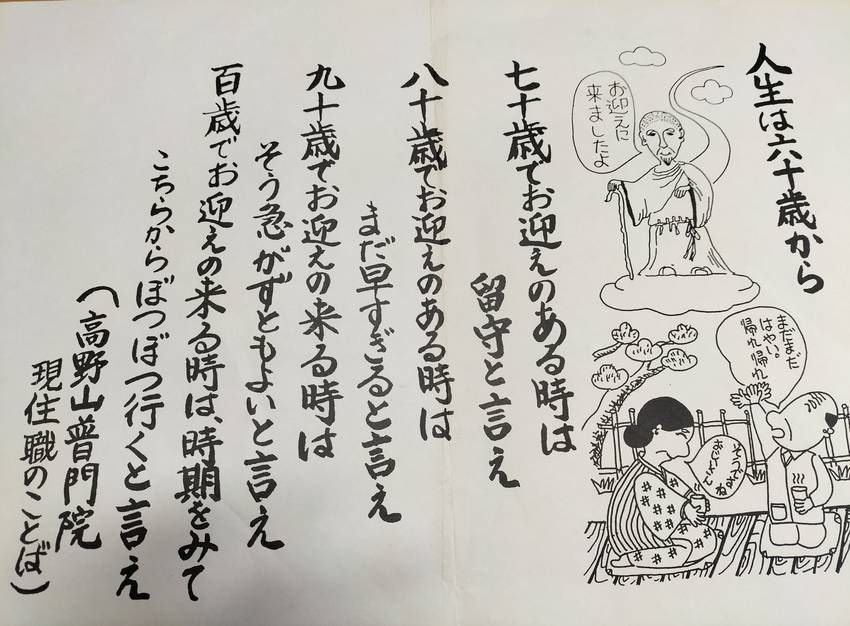 人生は六十歳から
お迎えに
来ましたよ
まだまだ
はやい。
帰れ帰れ
そうですよ
おじいさんね
七十歳でお迎えのある時は
留守と言え
八十歳でお迎えのある時は
まだ早すぎると言え
九十歳でお迎えの来る時は
そう急がずともよいと言え
百歳でお迎えの来る時は、時期をみて
こちらからぼつぼつ行くと言え
(高野山普門院
現住職のことば)